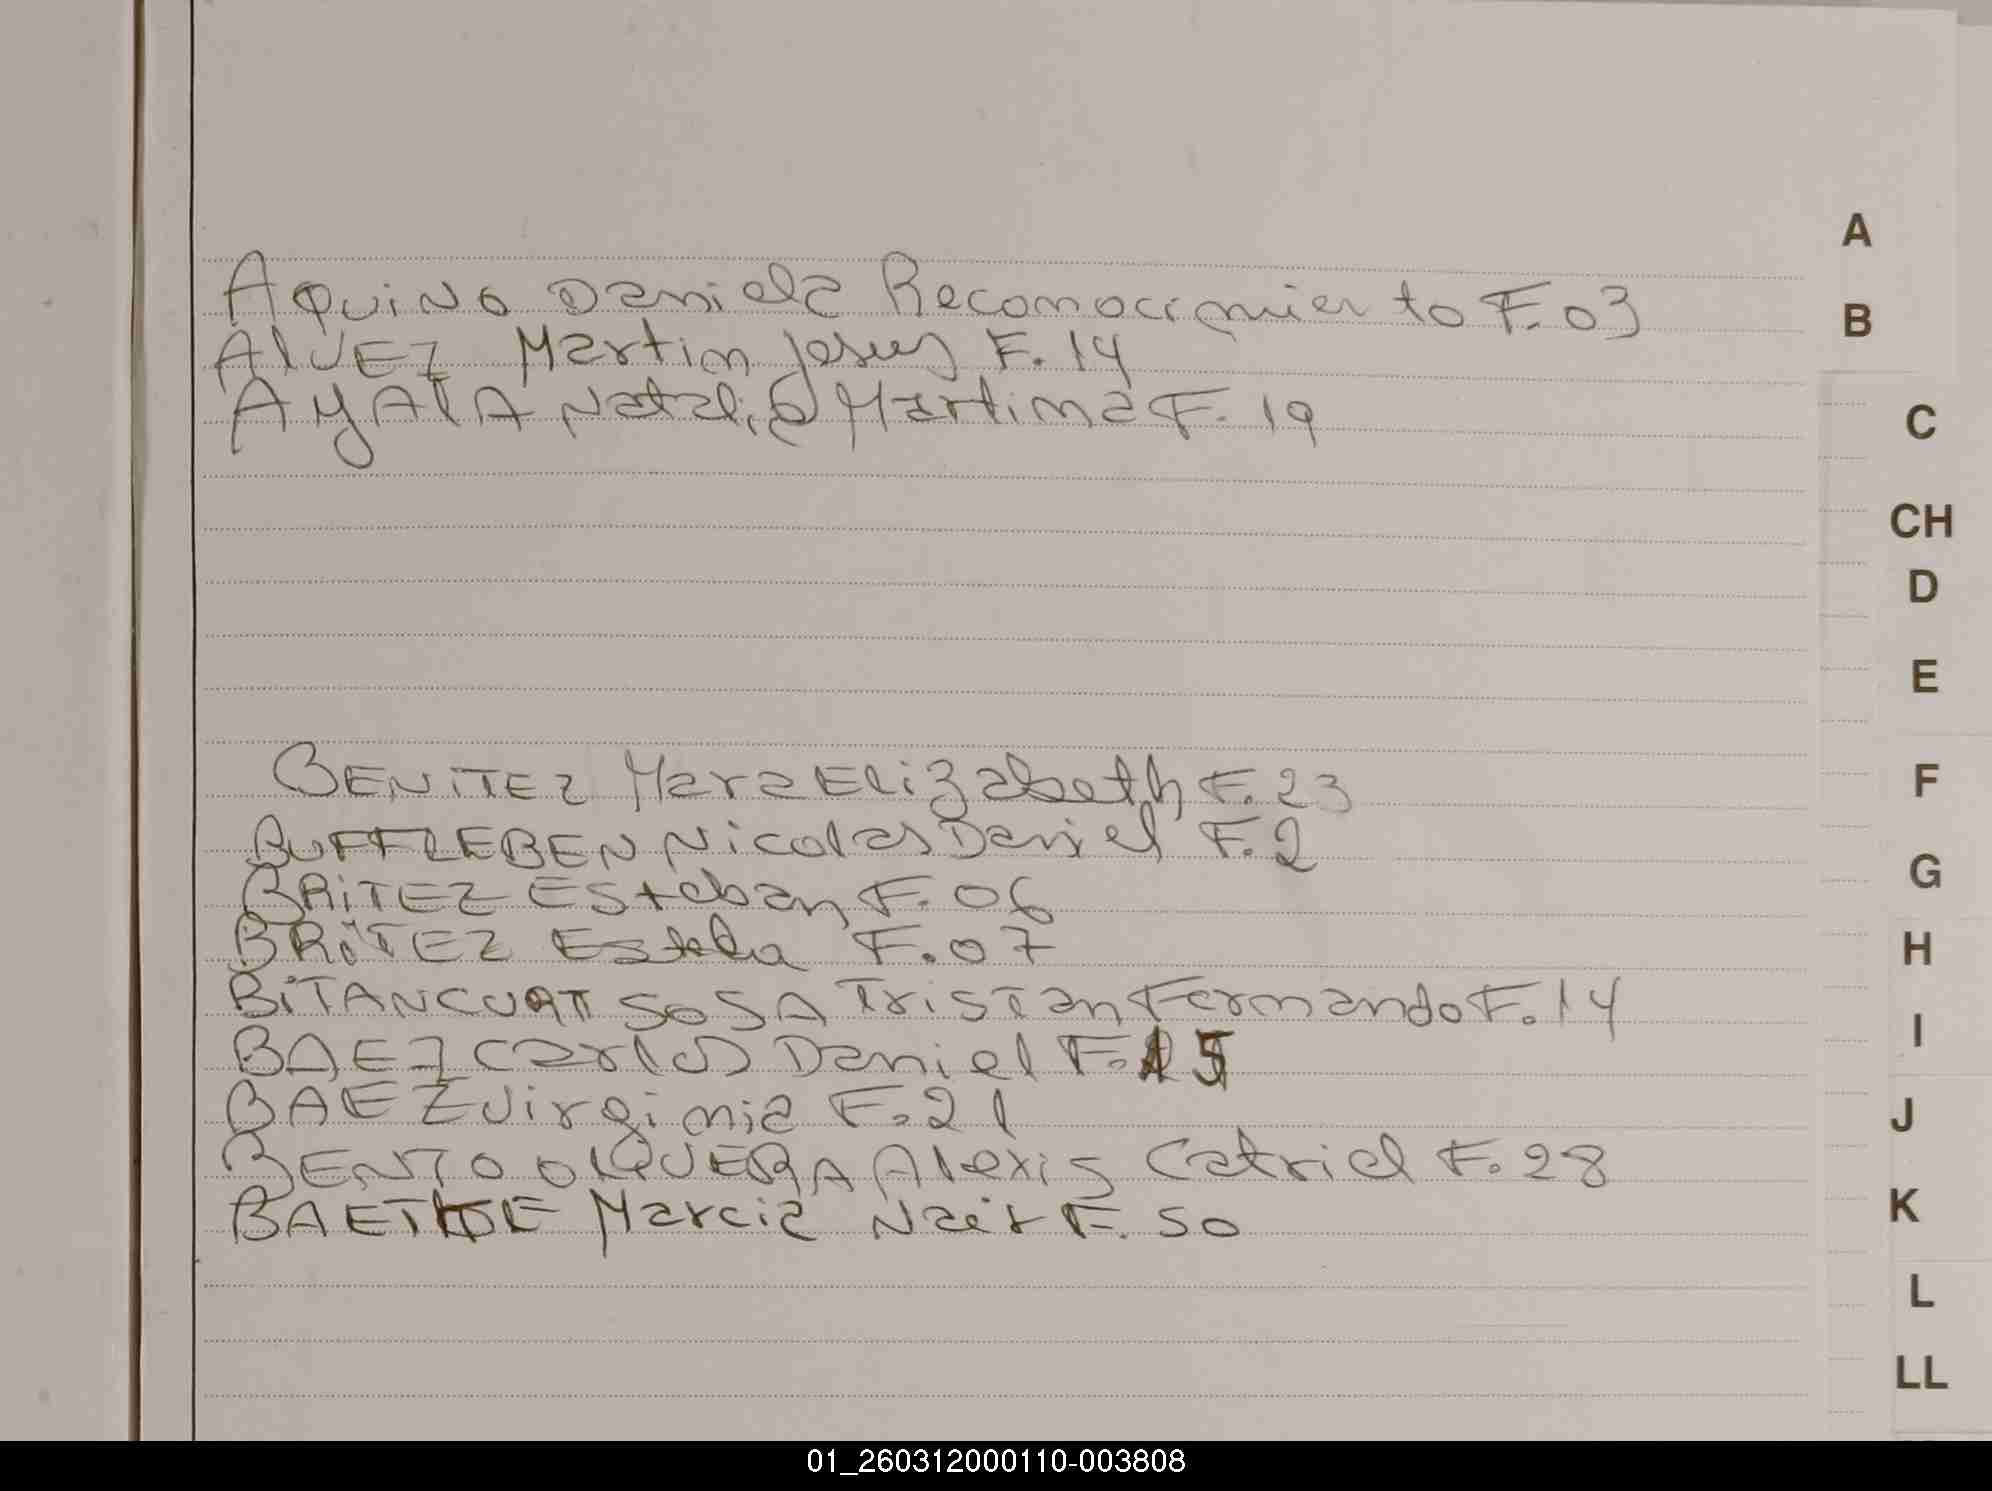 A
B
C
CH
D
E
F
G
H
I
J
K
L
LL
AQUINO Daniela Reconocimiento F.03
AlVEZ Martin Jesus F.14
AYAlA Natalia Martina F.19
BENITEZ Mara Elizabeth F.23
BUFFLEBEN Nicolas Daniel F.2
BRITEZ Esteban F.06
BRITEZ Estela F.07
BITANCURT SOSA Tristan Fernando F.14
BAEZ Carlos Daniel F.15
BAEZ Virginia F.21
BENTO OlQUERA Alexis Catriel F.28
Marcia Nair F.50
01_260312000110-003808